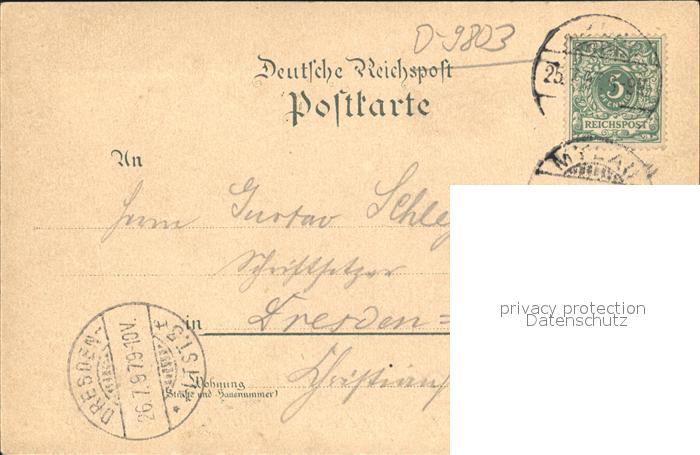 D-9803
Deutsche Reichspost
Postkarte
5
REICHSPOST
25.
MYLAU
An
Herrn Gustav Schle
Schriftsetzer
in Dresden=
Wohnung
(Straße und Hausnummer)
Christian
DRESDEN
26.7.97.9-10V.
privacy protection
Datenschutz